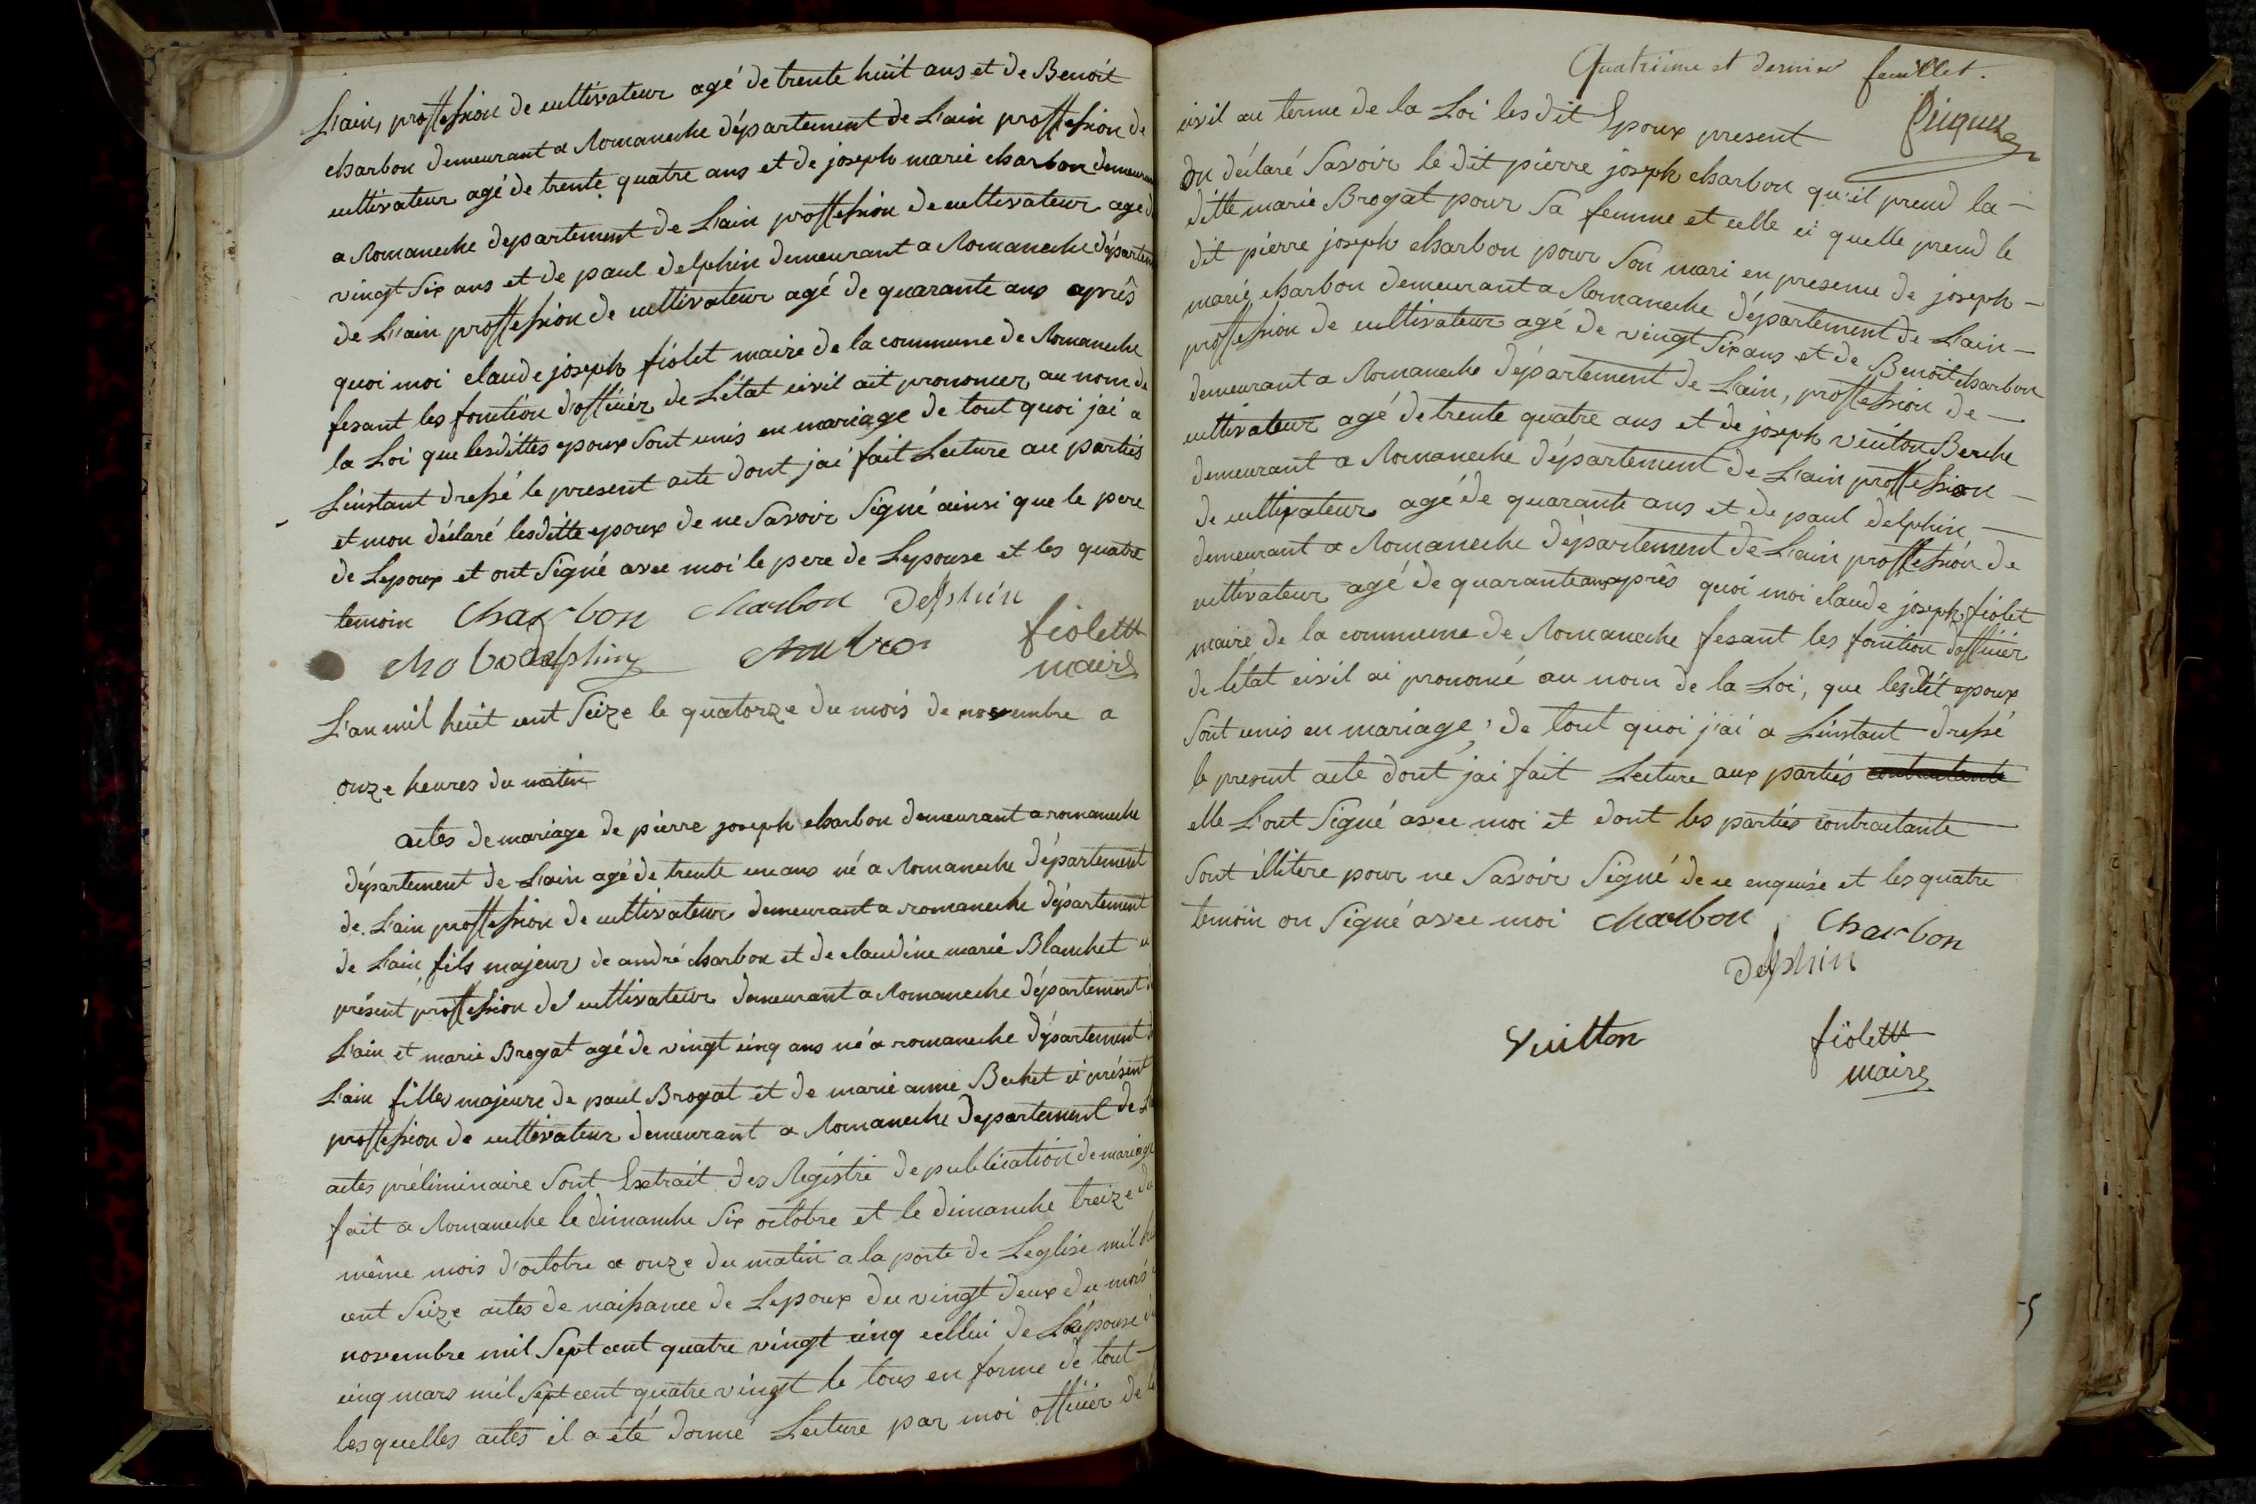 L'ain, proffession de cultivateur agé de trente huit ans et de Benoit
charbon demeurant a Romaneche département de L'ain proffession de
cultivateur agé de trente quatre ans et de joseph marie charbon demeurant
a Romaneche departement de L'ain proffession de cultivateur age de
vingt six ans et de paul delphin demeurant a Romaneche départem
de L'ain proffession de cultivateur agé de quarante ans après
quoi moi claude joseph fiolet maire de la commune de Romaneche
fesant les fonction d'officiér de L'état civil ait prononcer au nom de
la Loi que lesdittes epoux sont unis en mariage de tout quoi jai a
L'instant dressé le present acte dont jai fait Lecture au partiés
et mon déclaré lesditte epoux de ne savoir signé ainsi que le pere
de Lepoux et ont signé avec moi le pere de Lepouse et les quatre
temoin Charbon charbon Delphin
delphin fiolettt
maire
L'an mil huit cent seize le quatorze du mois de novembre a
onze heures du matin
actes de mariage de pierre joseph charbon demeurant a romaneche
département de L'ain agé de trente un ans né a Romaneche département
de L'ain proffession de cultivateur demeurant a romaneche département
de L'ain fils majeur de andré charbon et de claudine marie Blanchet ci
présent proffession de cultivateur demeurant a Romaneche département d
L'ain et marie Brogat agé de vingt cinq ans né a romaneche département d
L'ain filles majeure de paul Brogat et de marie anne Bechet ci présent
proffession de cultivateur demeurant a Romaneche departement de L
actes préliminaire sont Extrait des Régistre de publication de mariage
fait a Romaneche le dimanche six octobre et le dimanche treize du
même mois d'octobre a onze du matin a la porte de Leglise mil hui
cent seize actes de naissance de Lepoux du vingt deux du mois
novembre mil sept cent quatre vingt cinq cellui de L'épouse du
cinq mars mil sept cent quatre vingt le tous en forme de tout
lesquelles actes il a été donné Lecture par moi officiér de l
Quatrieme et dernier feuillet.
civil au terme de la Loi les dit Epoux present
on déclaré savoir le dit pierre joseph charbon qu'il prend la
ditte marie Brogat pour sa femme et celle ci quelle prend le
dit pierre joseph charbon pour son mari en presence de joseph
marie charbon demeurant a Romaneche département de L'ain
proffession de cultivateur agé de vingt six ans et de Benoit charbon
demeurant a Romaneche département de L'ain, proffession de
cultivateur agé de trente quatre ans et de joseph vuiton Berche
demeurant a Romaneche département de L'ain proffession
de cultivateur agé de quarante ans et de paul delphin
demeurant a Romaneche département de L'ain proffession de
cultivateur agé de quarante ans après quoi moi claude joseph fiolet
maire de la commune de Romaneche fesant les fonction d'officier
de letat civil ai prononcé au nom de la Loi, que lesdit epoux
sont unis en mariage, de tout quoi j'ai a L'instant dressé
le present acte dont jai fait Lecture aux partiés contractante
elle L'ont signé avec moi et dont les partiés contractante
sont illitere pour ne savoir signé de ce enquise et les quatre
temoin on signé avec moi charbon Charbon
Delphin
Vuitton fiolettt
maire